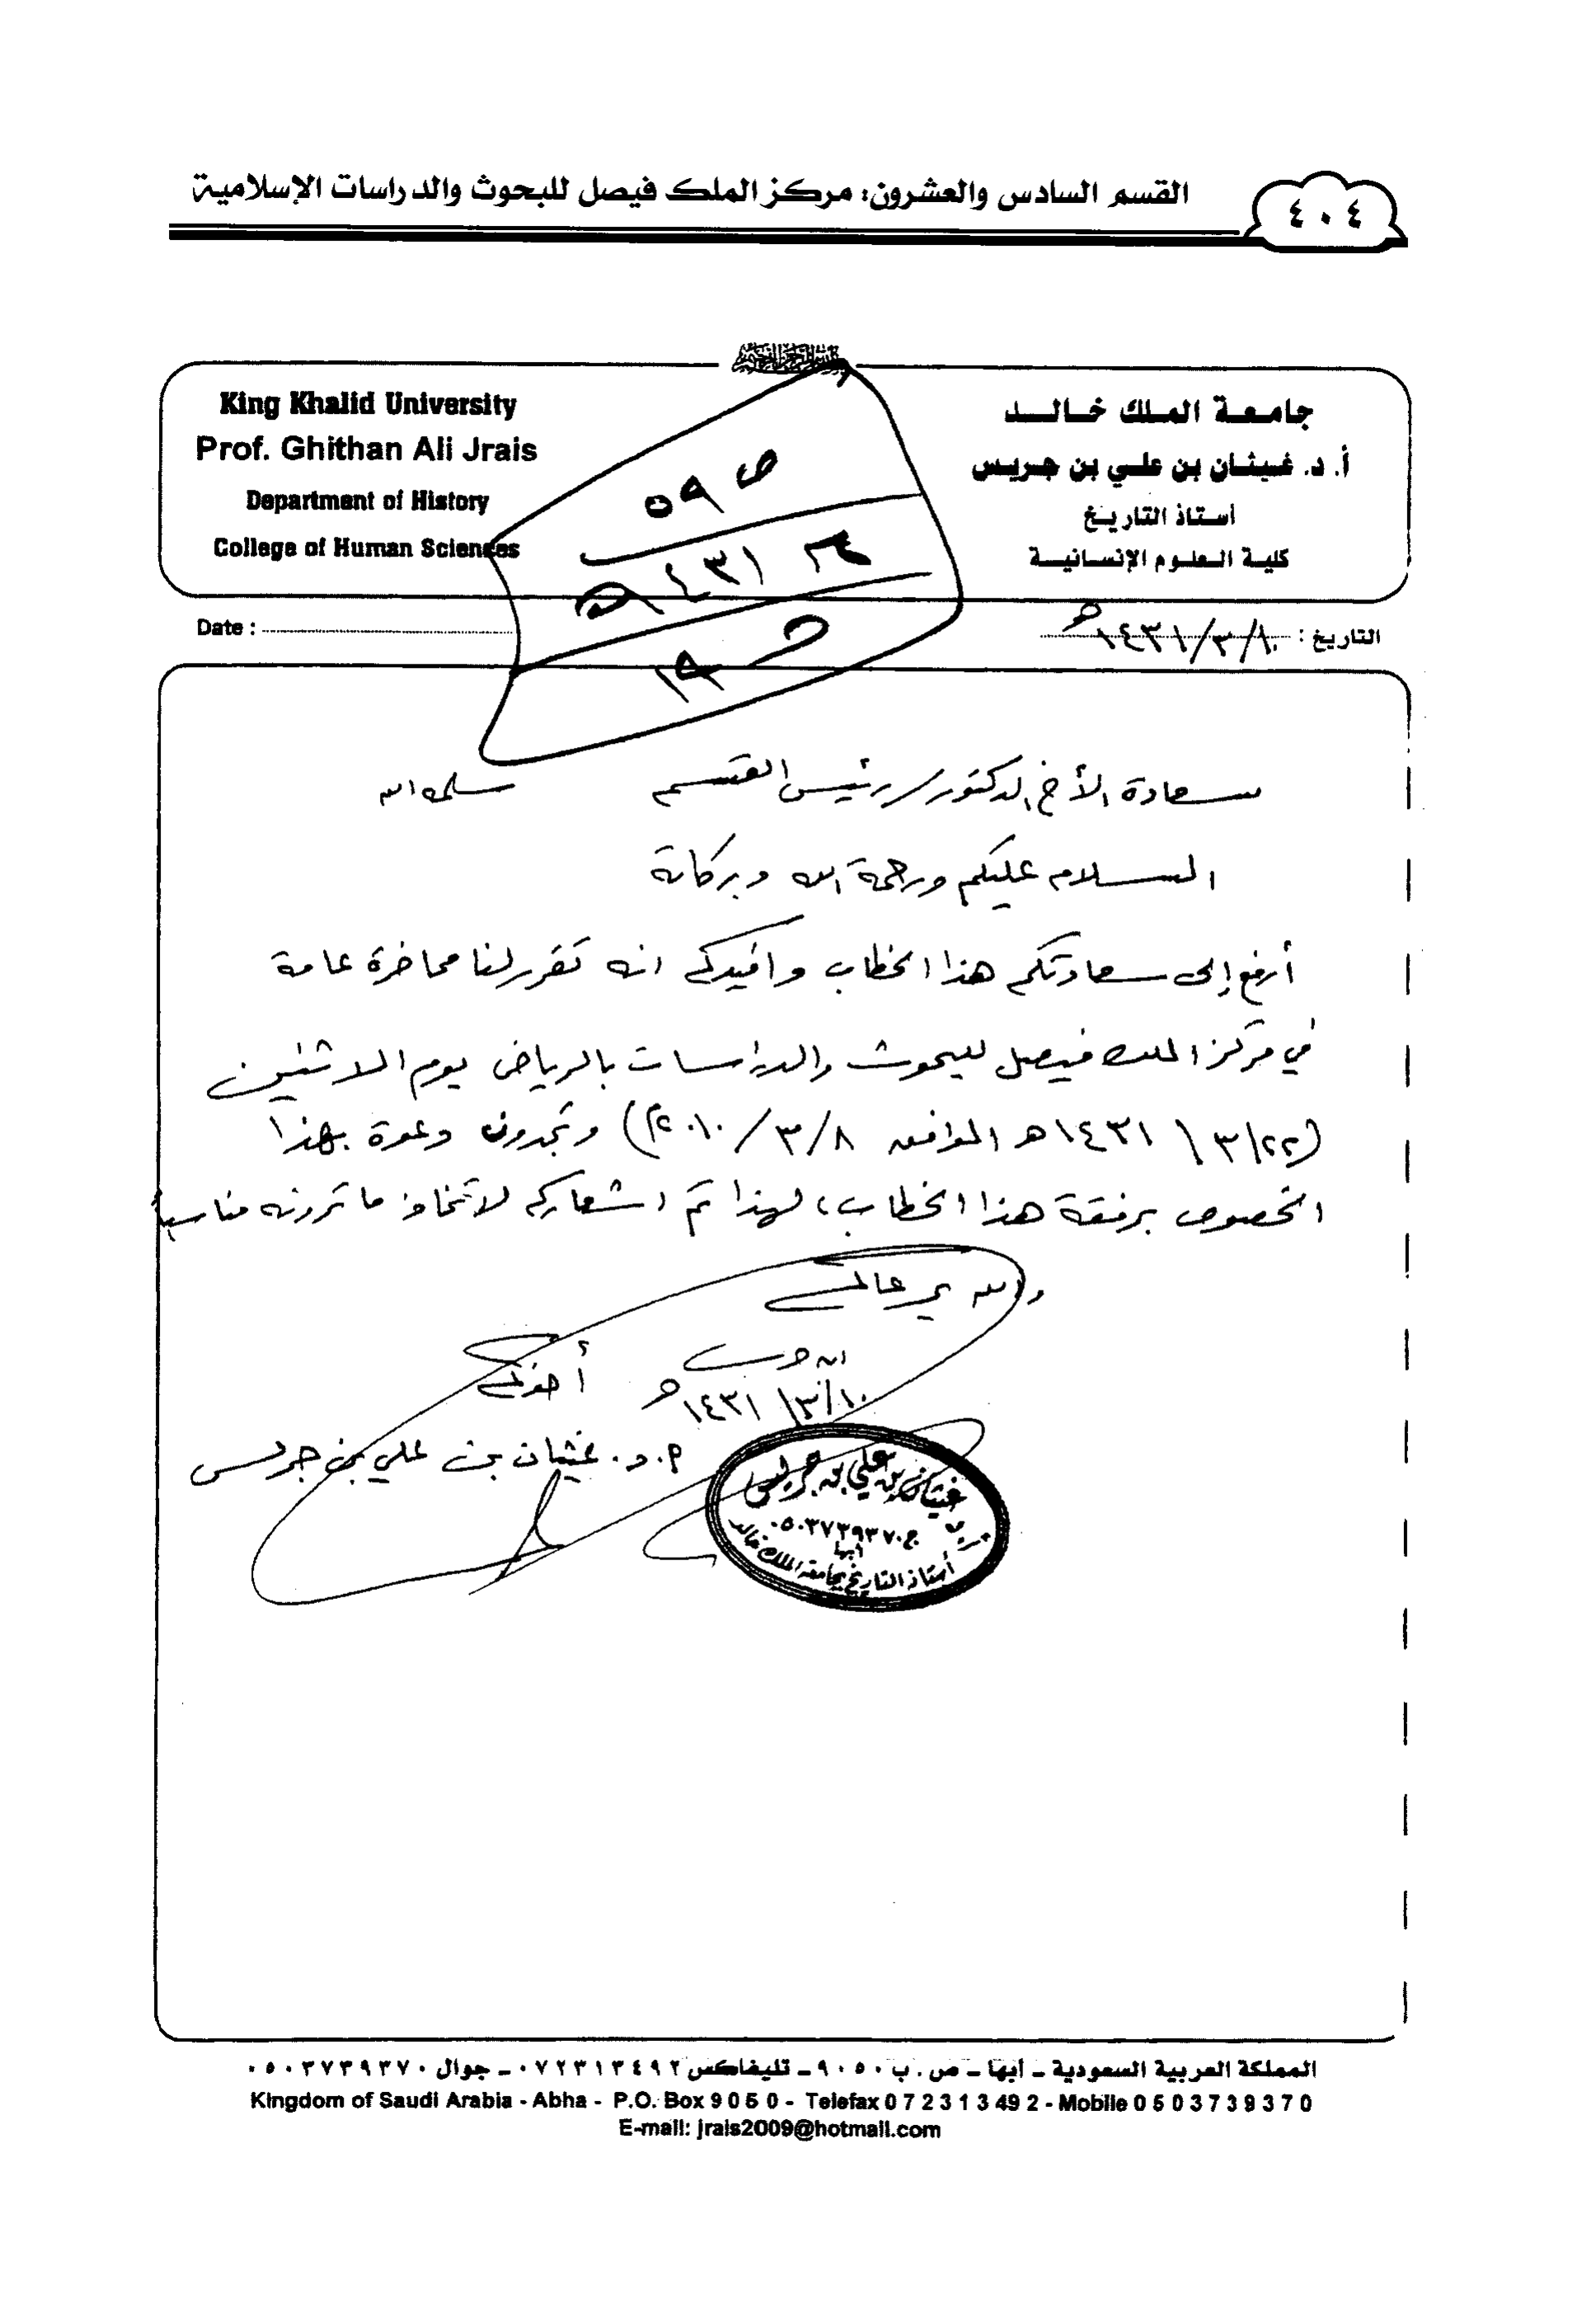 القسم السادس والعشرون: مركز الملك فيصل للبحوث والدراسات الإسلامية
٤٠٤
King Khalid University
Prof. Ghithan Ali Jrais
Department of History
College of Human Sciences
جامعة الملك خالد
أ. د. غيثان بن علي بن جريس
أستاذ التاريخ
كلية العلوم الإنسانية
ص ٥٩
١٤٣١هـ
١٩
Date :
التاريخ : ١٠/٣/١٤٣١هـ
سعادة الأخ الدكتور/ رئيس القسم سلمه الله
السلام عليكم ورحمة الله وبركاته
أرفع إلى سعادتكم هذا الخطاب وأفيدكم انه تقرر لنا محاضرة عامة
في مركز الملك فيصل للبحوث والدراسات بالرياض يوم الاثنين
(٢٢/٣/١٤٣١هـ الموافق ٨/٣/٢٠١٠م) وتجدون دعوة بهذا
الخصوص برفقة هذا الخطاب، لهذا تم اشعاركم لاتخاذ ما ترونه مناسباً
والله يرعاكم
ابن جريس
١٠/٣/١٤٣١هـ
أخوكم
أ.د. غيثان بن علي بن جريس
غيثان بن علي بن جريس
ج ٠٥٠٣٧٣٩٣٧٠
أبها
أستاذ التاريخ بجامعة الملك خالد
المملكة العربية السعودية - أبها - ص . ب ٩٠٥٠ - تليفاكس ٠٧٢٣١٣٤٩٢ - جوال ٠٥٠٣٧٣٩٣٧٠
Kingdom of Saudi Arabia - Abha - P.O. Box 9 0 5 0 - Telefax 0 7 2 3 1 3 49 2 - Mobile 0 5 0 3 7 3 9 3 7 0
E-mail: jrais2009@hotmail.com